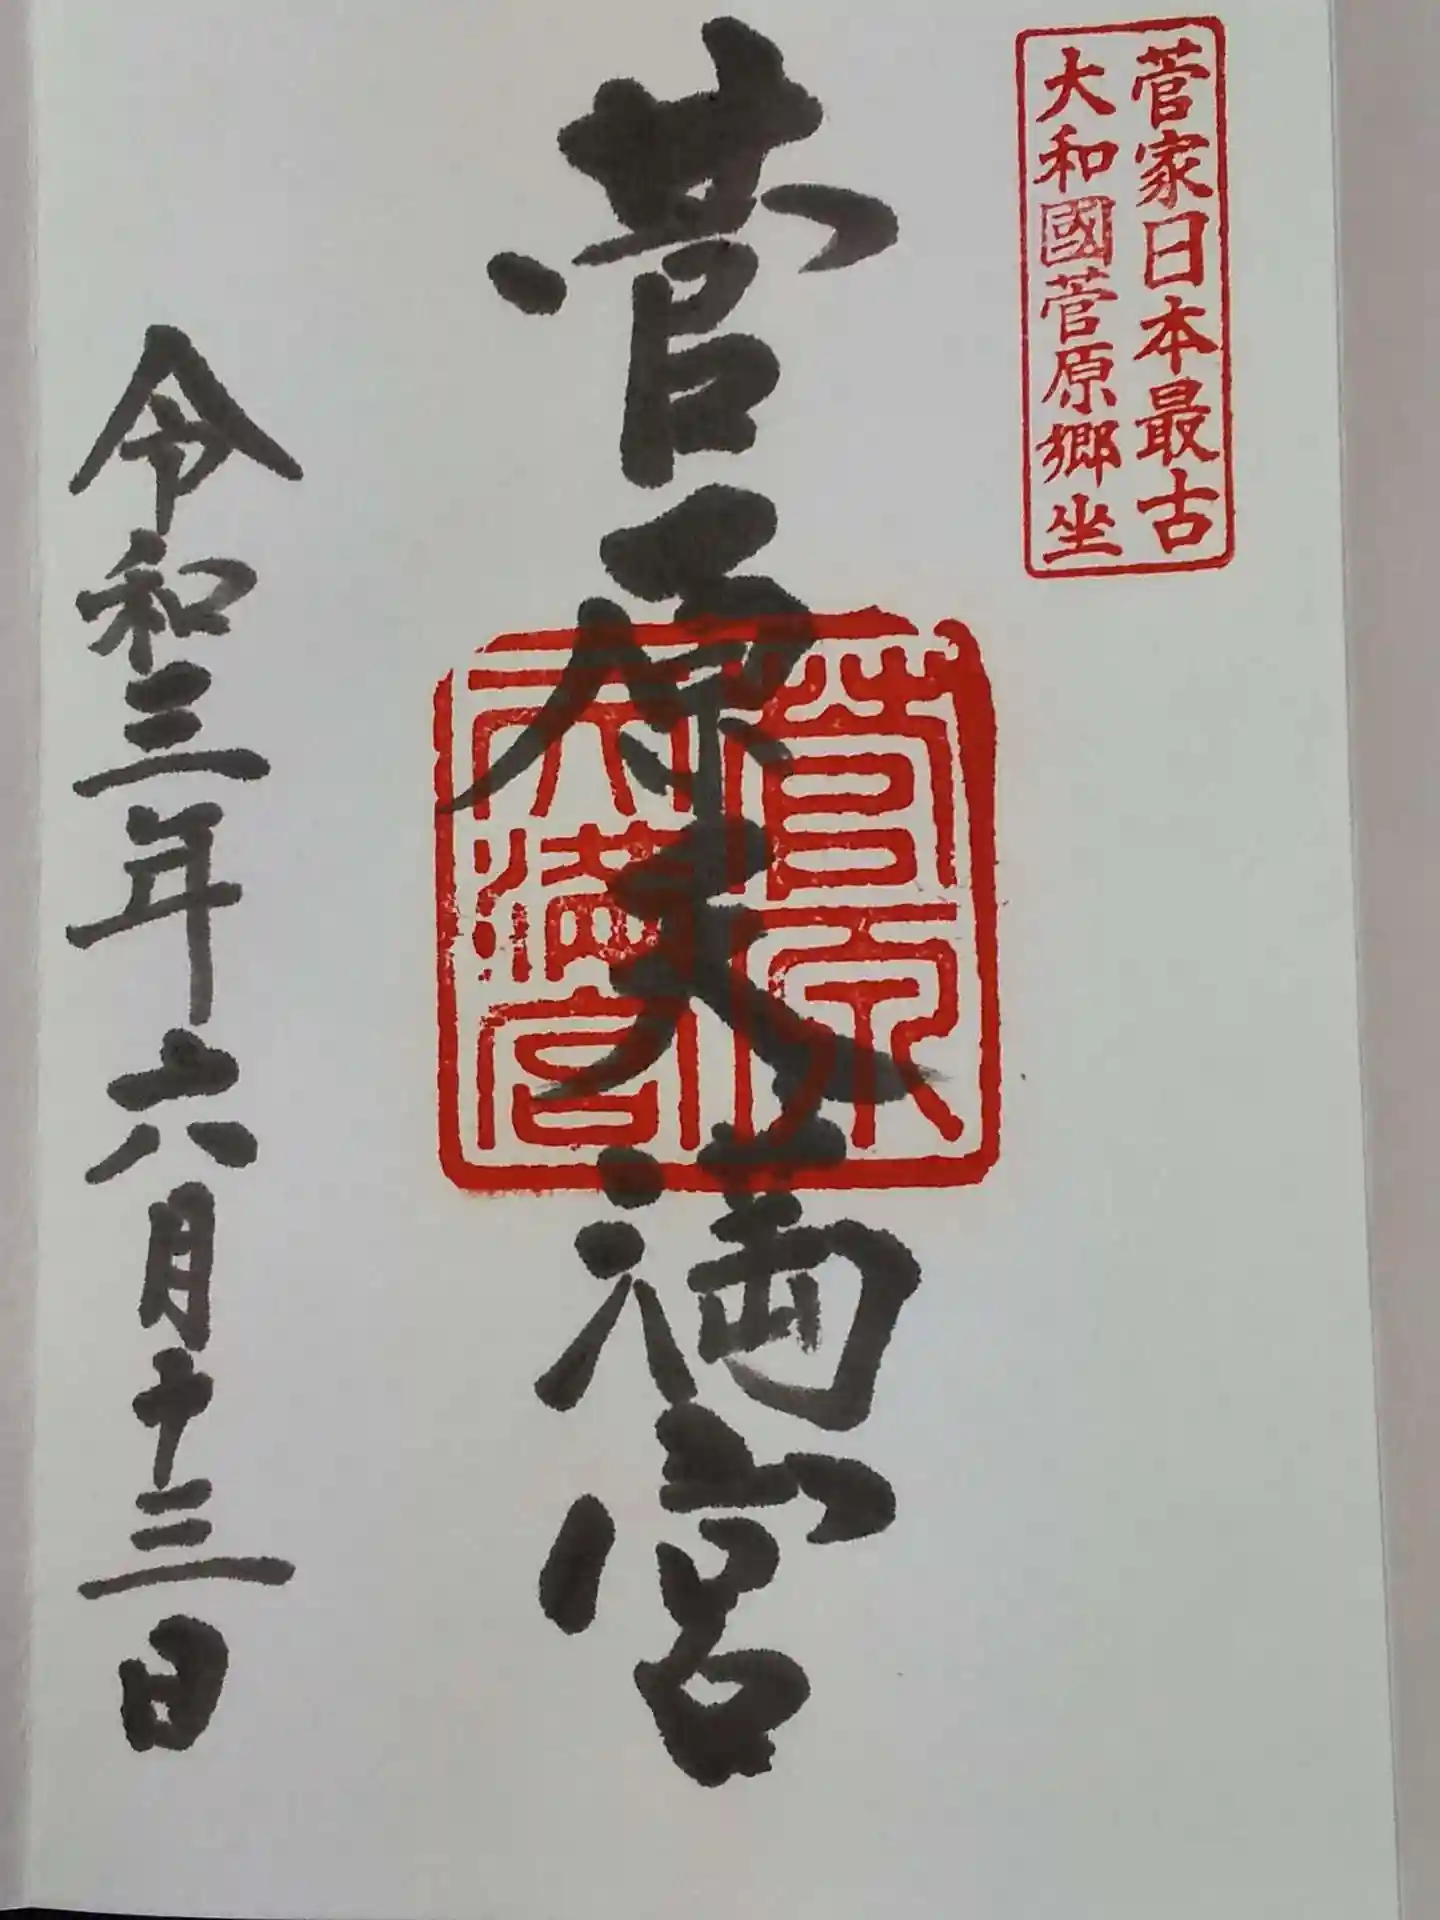 菅家日本最古
大和國菅原郷坐
菅原天満宮
菅原
天満宮
令和三年六月十三日